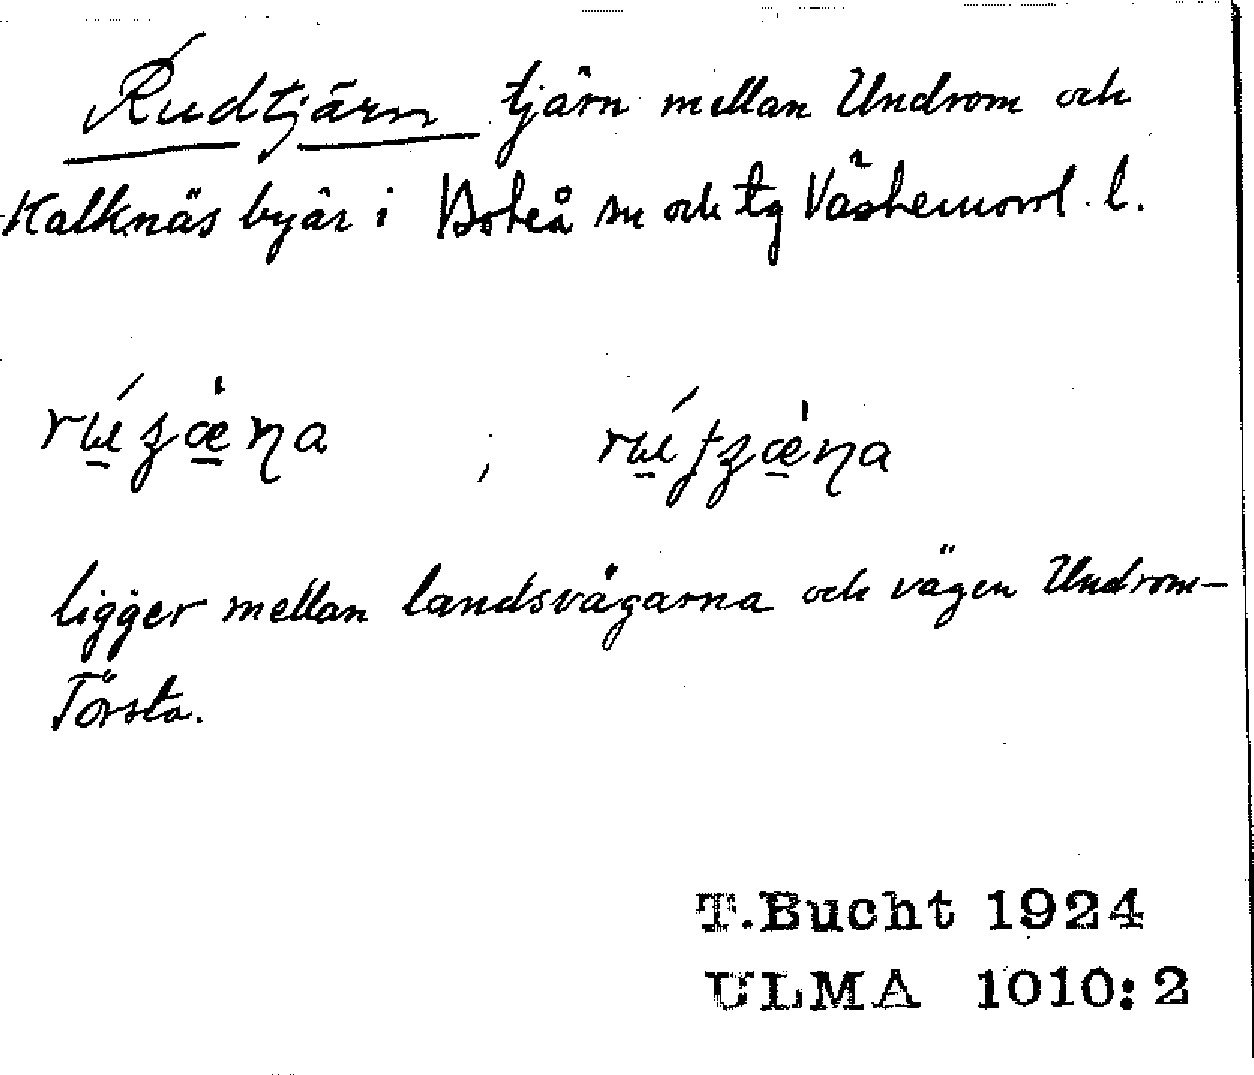 Rudtjärn tjärn mellan Undrom och
Kalknäs byar i Boteå sn och tg Västernorrl. l.
ligger mellan landsvägarna och vägen Undrom-
Törsta.
T.Bucht 1924
ULMA 1010:2